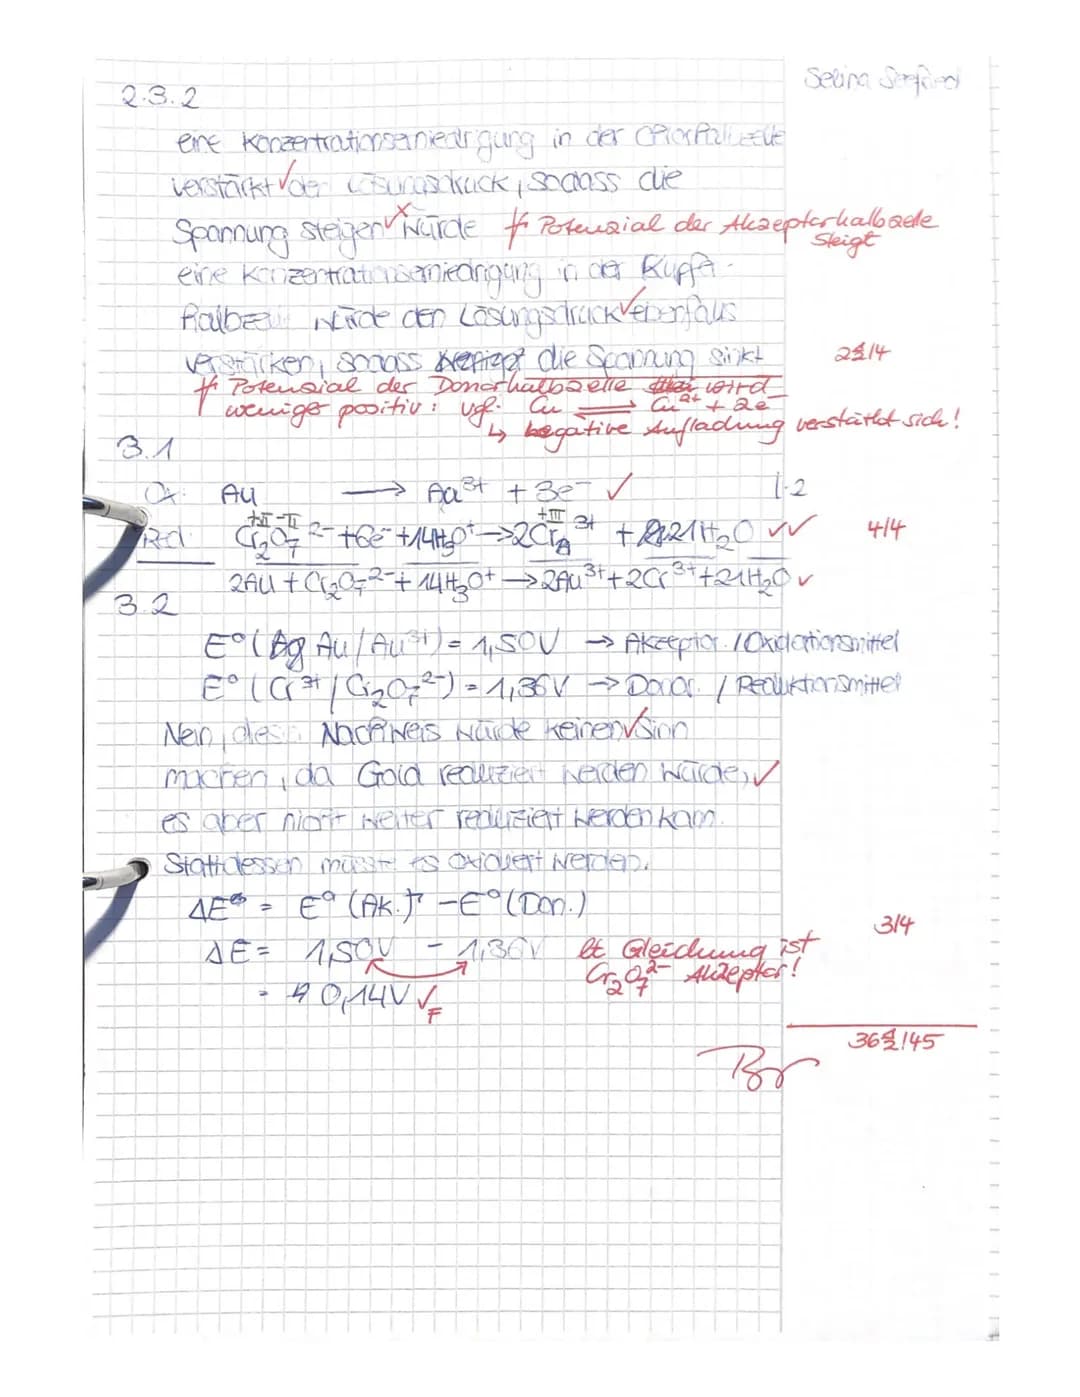 Selina
2.3.2
eine Konzentrationserniedrigung in der Chlorhalbzelle
verstärkt ✓ den Lösungsdruck, sodass die
Spannung steigen ✓ würde ƒ Potenzial der Akzeptorhalbzelle
steigt
eine Konzentrationserniedrigung in der Kupfer-
halbzelle würde den Lösungsdruck ✓ ebenfalls
verstärken, sodass die Spannung sinkt 2½/4
ƒ Potenzial der Donorhalbzelle wird
weniger positiv: vgl. Cu ⇌ Cu²⁺ + 2e⁻
↳ negative Aufladung verstärkt sich!
3.1
Ox. Au → Au³⁺ + 3e⁻ ✓ |·2
+VI -II +III
Red. Cr₂O₇²⁻ + 6e⁻ + 14H₃O⁺ → 2Cr³⁺ + 21H₂O ✓✓ 4/4
2Au + Cr₂O₇²⁻ + 14H₃O⁺ → 2Au³⁺ + 2Cr³⁺ + 21H₂O ✓
3.2
E°(Au/Au³⁺) = 1,50V → Akzeptor / Oxidationsmittel
E°(Cr³⁺/Cr₂O₇²⁻) = 1,36V → Donor / Reduktionsmittel
Nein, dieser Nachweis würde keinen ✓ Sinn
machen, da Gold reduziert werden würde, ✓
es aber nicht weiter reduziert werden kann.
Stattdessen müsste es oxidiert werden.
ΔE° = E°(Ak.) - E°(Don.)
3/4
ΔE = 1,50V - 1,36V lt Gleichung ist
Cr₂O₇²⁻ Akzeptor!
= 0,14V ✓F
36½/45
Br